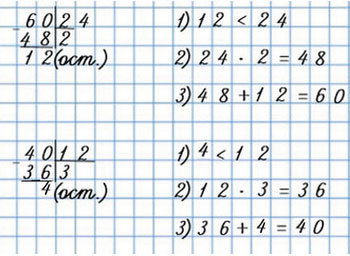 - 60 24 1) 12 < 24
48 2 2) 24 · 2 = 48
12 (ост.) 3) 48 + 12 = 60
- 40 12 1) 4 < 12
36 3 2) 12 · 3 = 36
4 (ост.) 3) 36 + 4 = 40